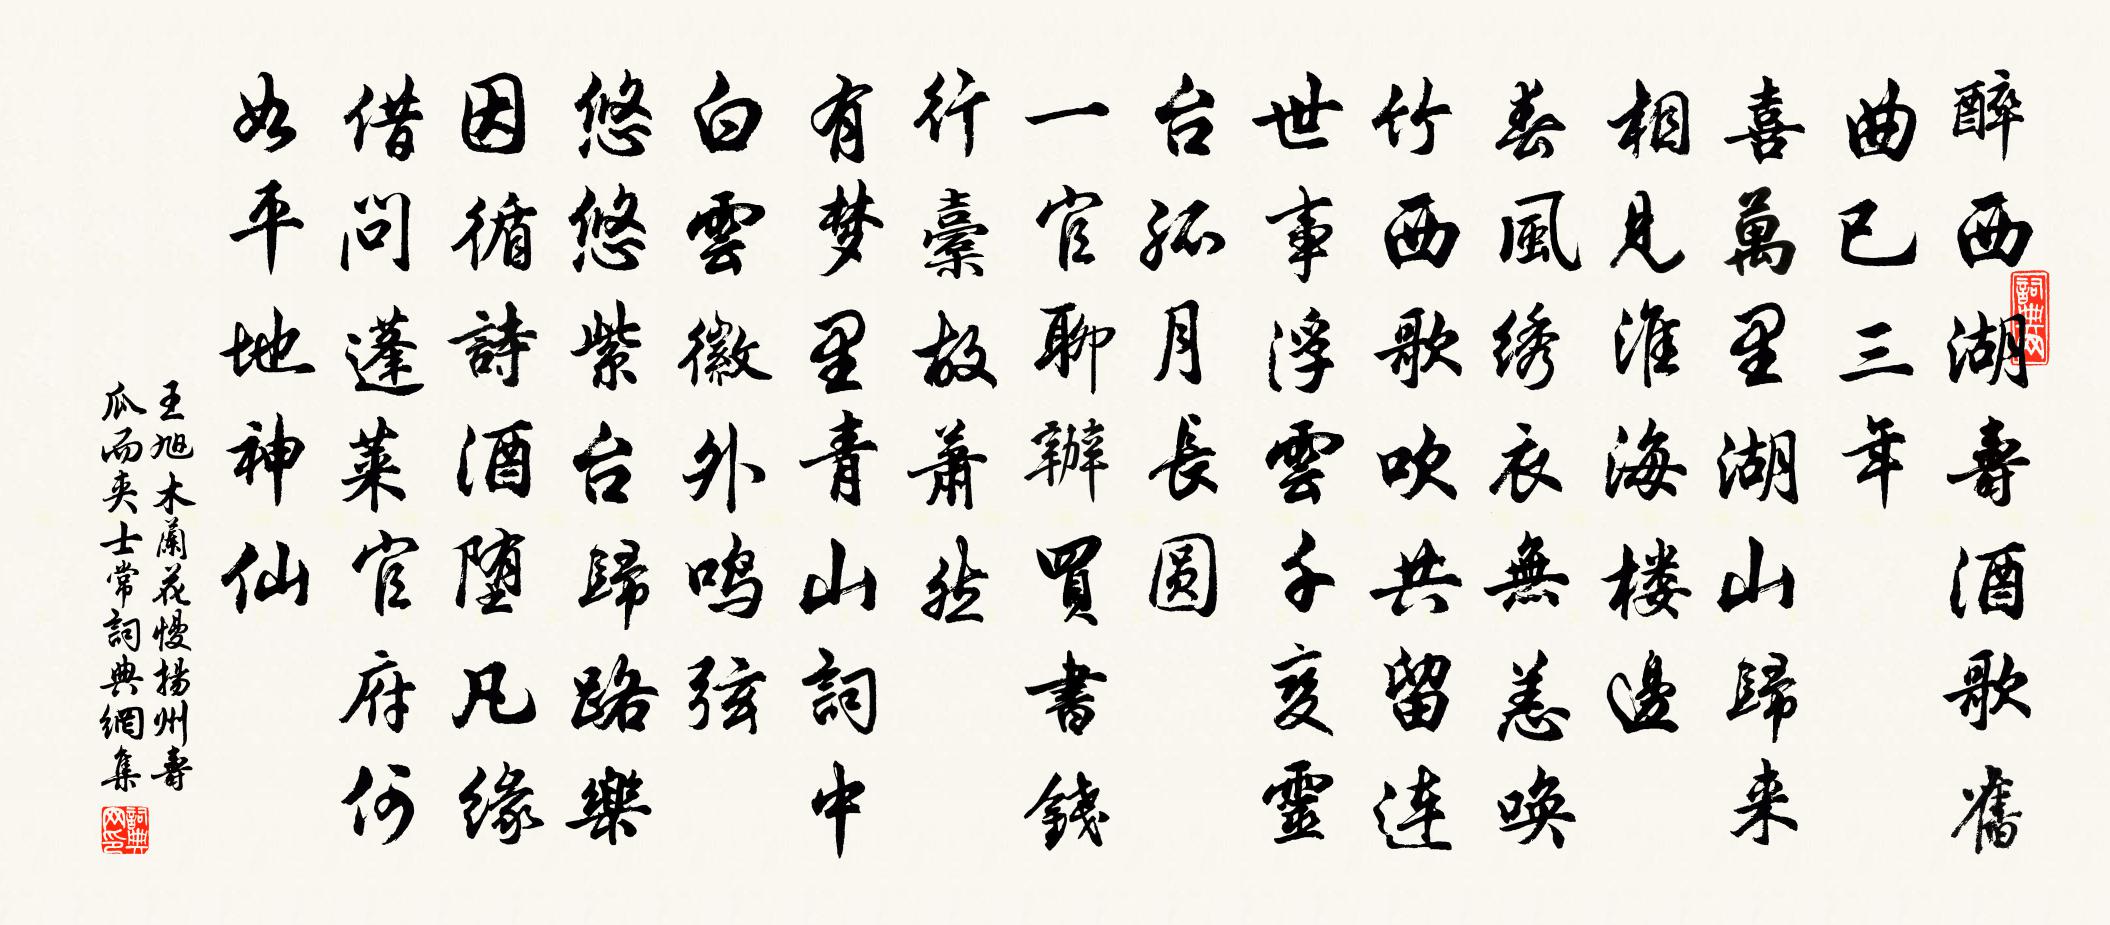 醉西湖壽酒歌舊
曲已三年
喜萬里湖山歸来
相見淮海楼邊
春風绣衣無恙唤
竹西歌吹共留连
世事浮雲千变靈
台孤月長圆
一官聊辦買書錢
行橐故萧然
有梦里青山詞中
白雲徽外鸣弦
悠悠紫台歸路樂
因循詩酒堕凡缘
借问蓬莱官府何
如平地神仙
王旭木蘭花慢揚州壽
瓜而夹士常詞典網集
詞典网
詞典网印